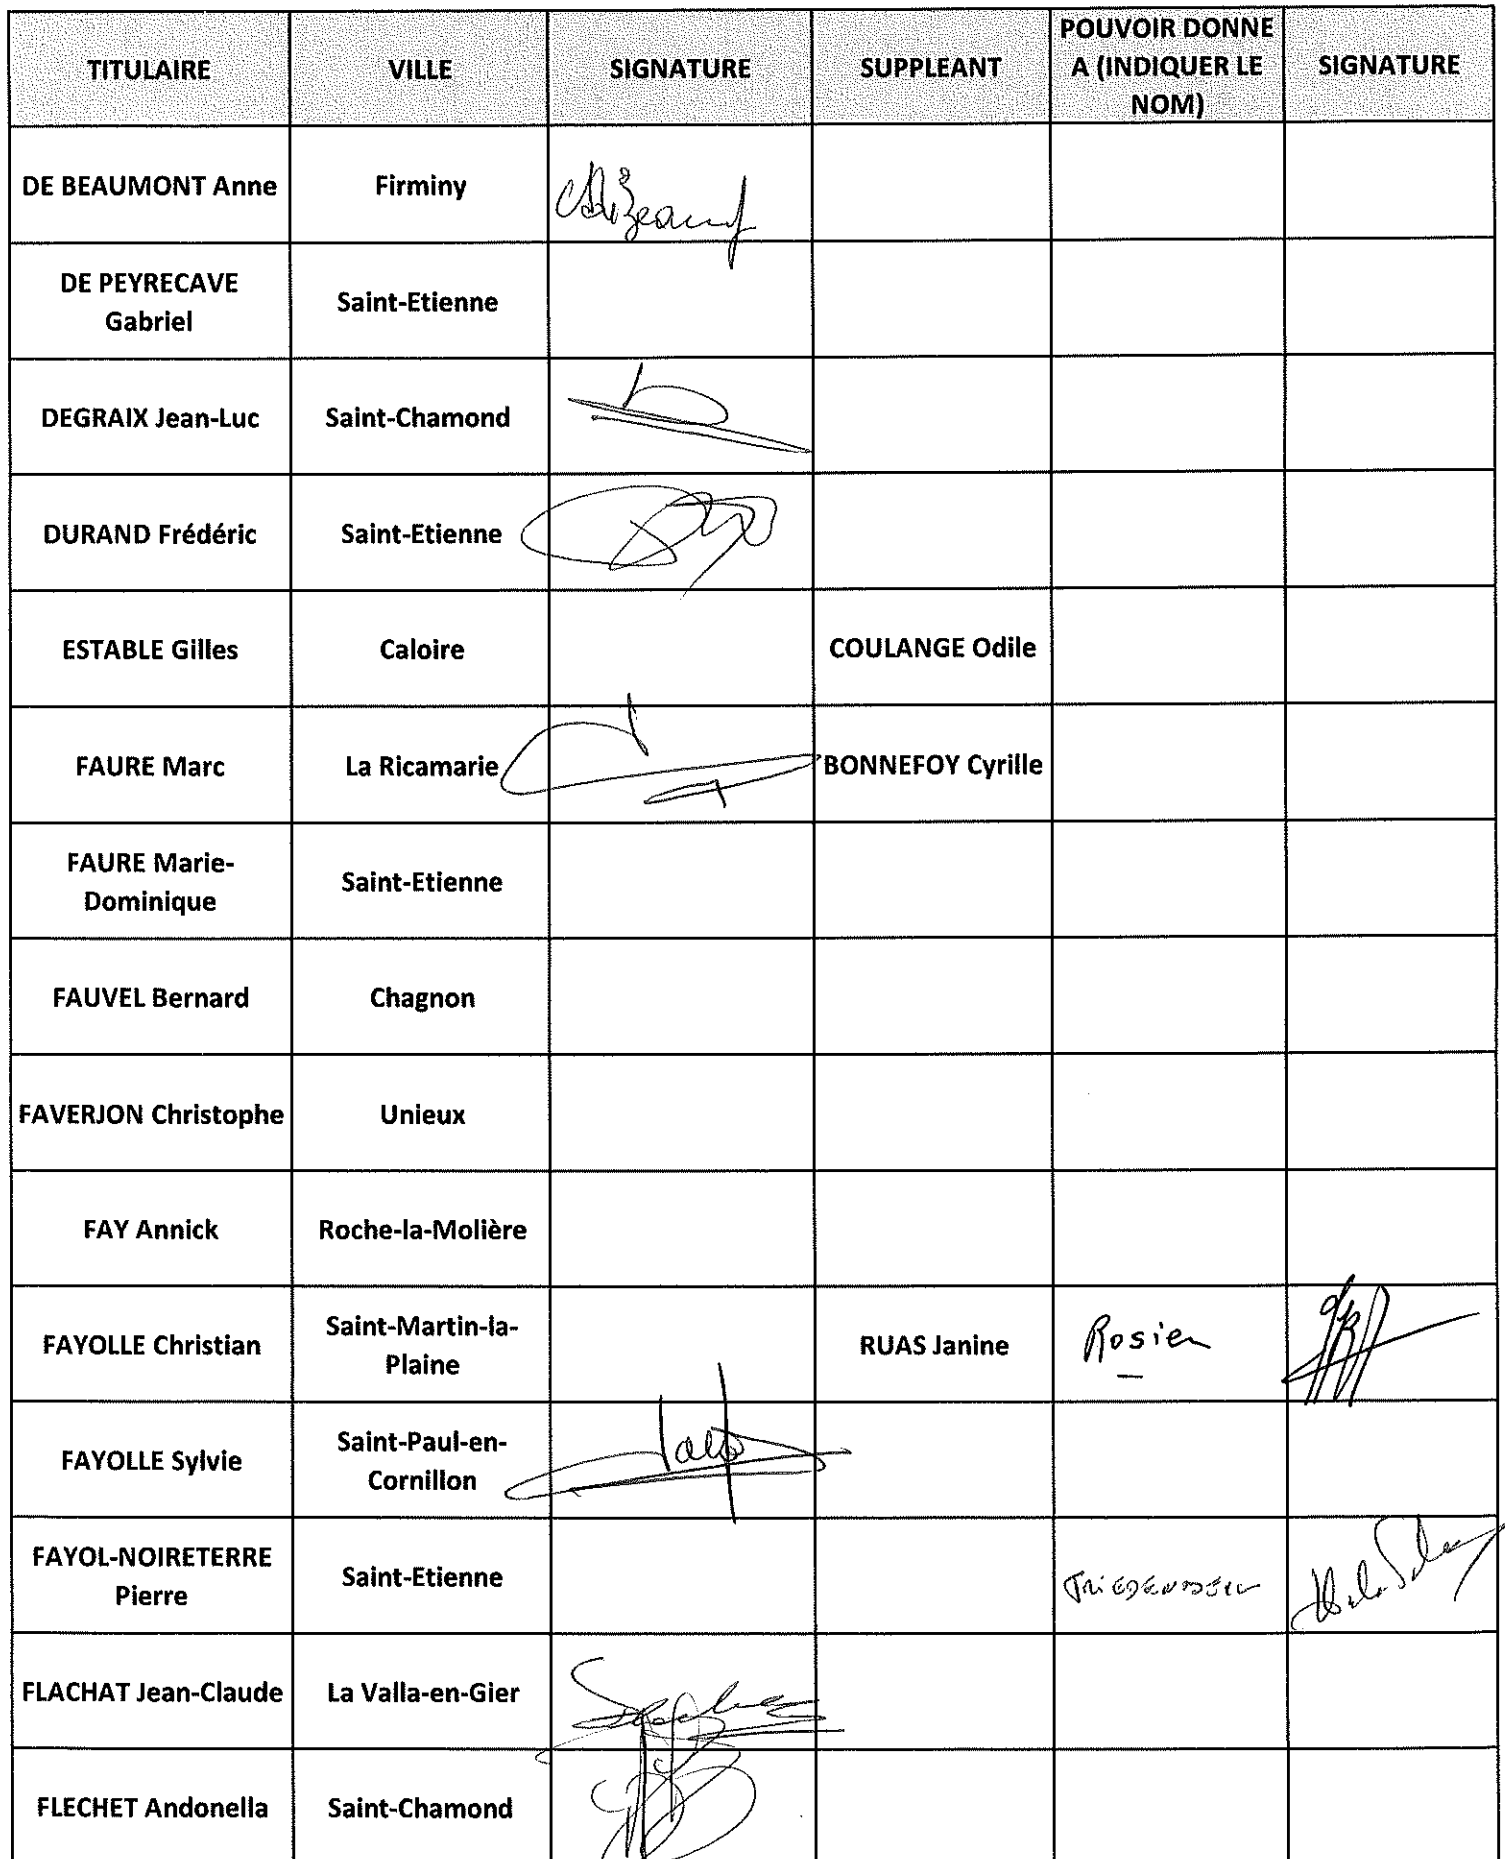 TITULAIRE VILLE SIGNATURE SUPPLEANT POUVOIR DONNE A (INDIQUER LE NOM) SIGNATURE
DE BEAUMONT Anne Firminy
DE PEYRECAVE Gabriel Saint-Etienne
DEGRAIX Jean-Luc Saint-Chamond
DURAND Frédéric Saint-Etienne
ESTABLE Gilles Caloire COULANGE Odile
FAURE Marc La Ricamarie BONNEFOY Cyrille
FAURE Marie-Dominique Saint-Etienne
FAUVEL Bernard Chagnon
FAVERJON Christophe Unieux
FAY Annick Roche-la-Molière
FAYOLLE Christian Saint-Martin-la-Plaine RUAS Janine Rosier
FAYOLLE Sylvie Saint-Paul-en-Cornillon
FAYOL-NOIRETERRE Pierre Saint-Etienne
FLACHAT Jean-Claude La Valla-en-Gier
FLECHET Andonella Saint-Chamond